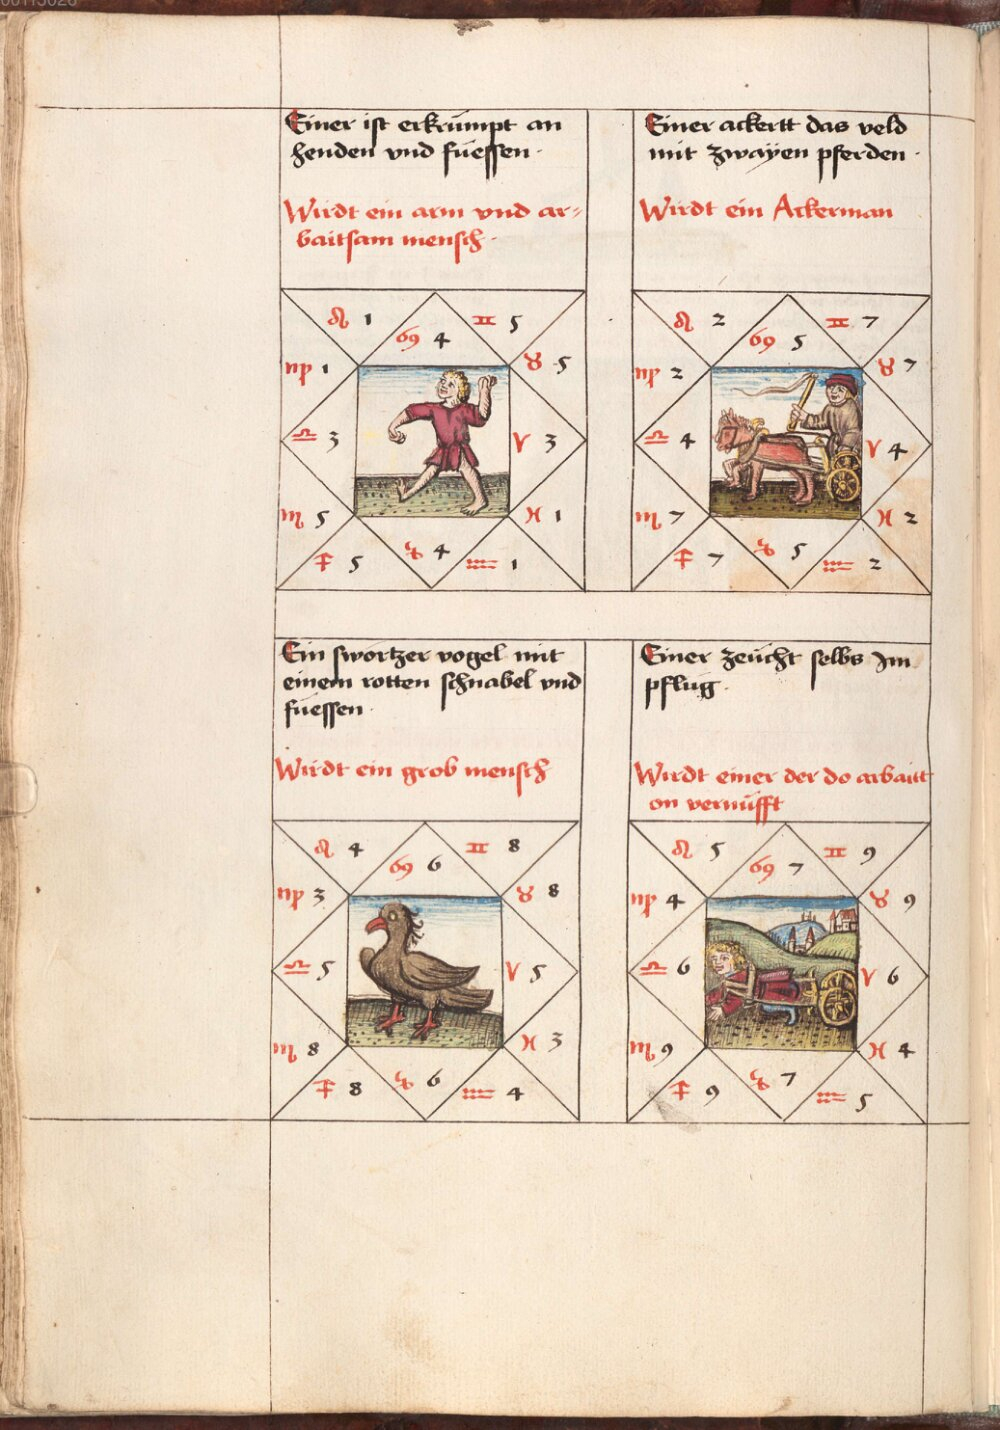 Einer ist erkrümpt an
henden vnd füessen ·
Wirdt ein arm vnd ar-
baitsam mensch ·
♌ 1
♋ 4
♊ 5
♍ 1
♉ 5
♎ 3
♈ 3
♏ 5
♓ 1
♐ 5
♑ 4
♒ 1
Einer ackertt das veld
mit zwayen pferden ·
Wirdt ein Ackerman
♌ 2
♋ 5
♊ 7
♍ 2
♉ 7
♎ 4
♈ 4
♏ 7
♓ 2
♐ 7
♑ 5
♒ 2
Ein swortzer vogel mit
einem rotten schnabel vnd
füessen ·
Wirdt ein grob mensch
♌ 4
♋ 6
♊ 8
♍ 3
♉ 8
♎ 5
♈ 5
♏ 8
♓ 3
♐ 8
♑ 6
♒ 4
Einer zeücht selbs Im
pflüg ·
Wirdt einer der do arbaitt
on vernüfft
♌ 5
♋ 7
♊ 9
♍ 4
♉ 9
♎ 6
♈ 6
♏ 9
♓ 4
♐ 9
♑ 7
♒ 5